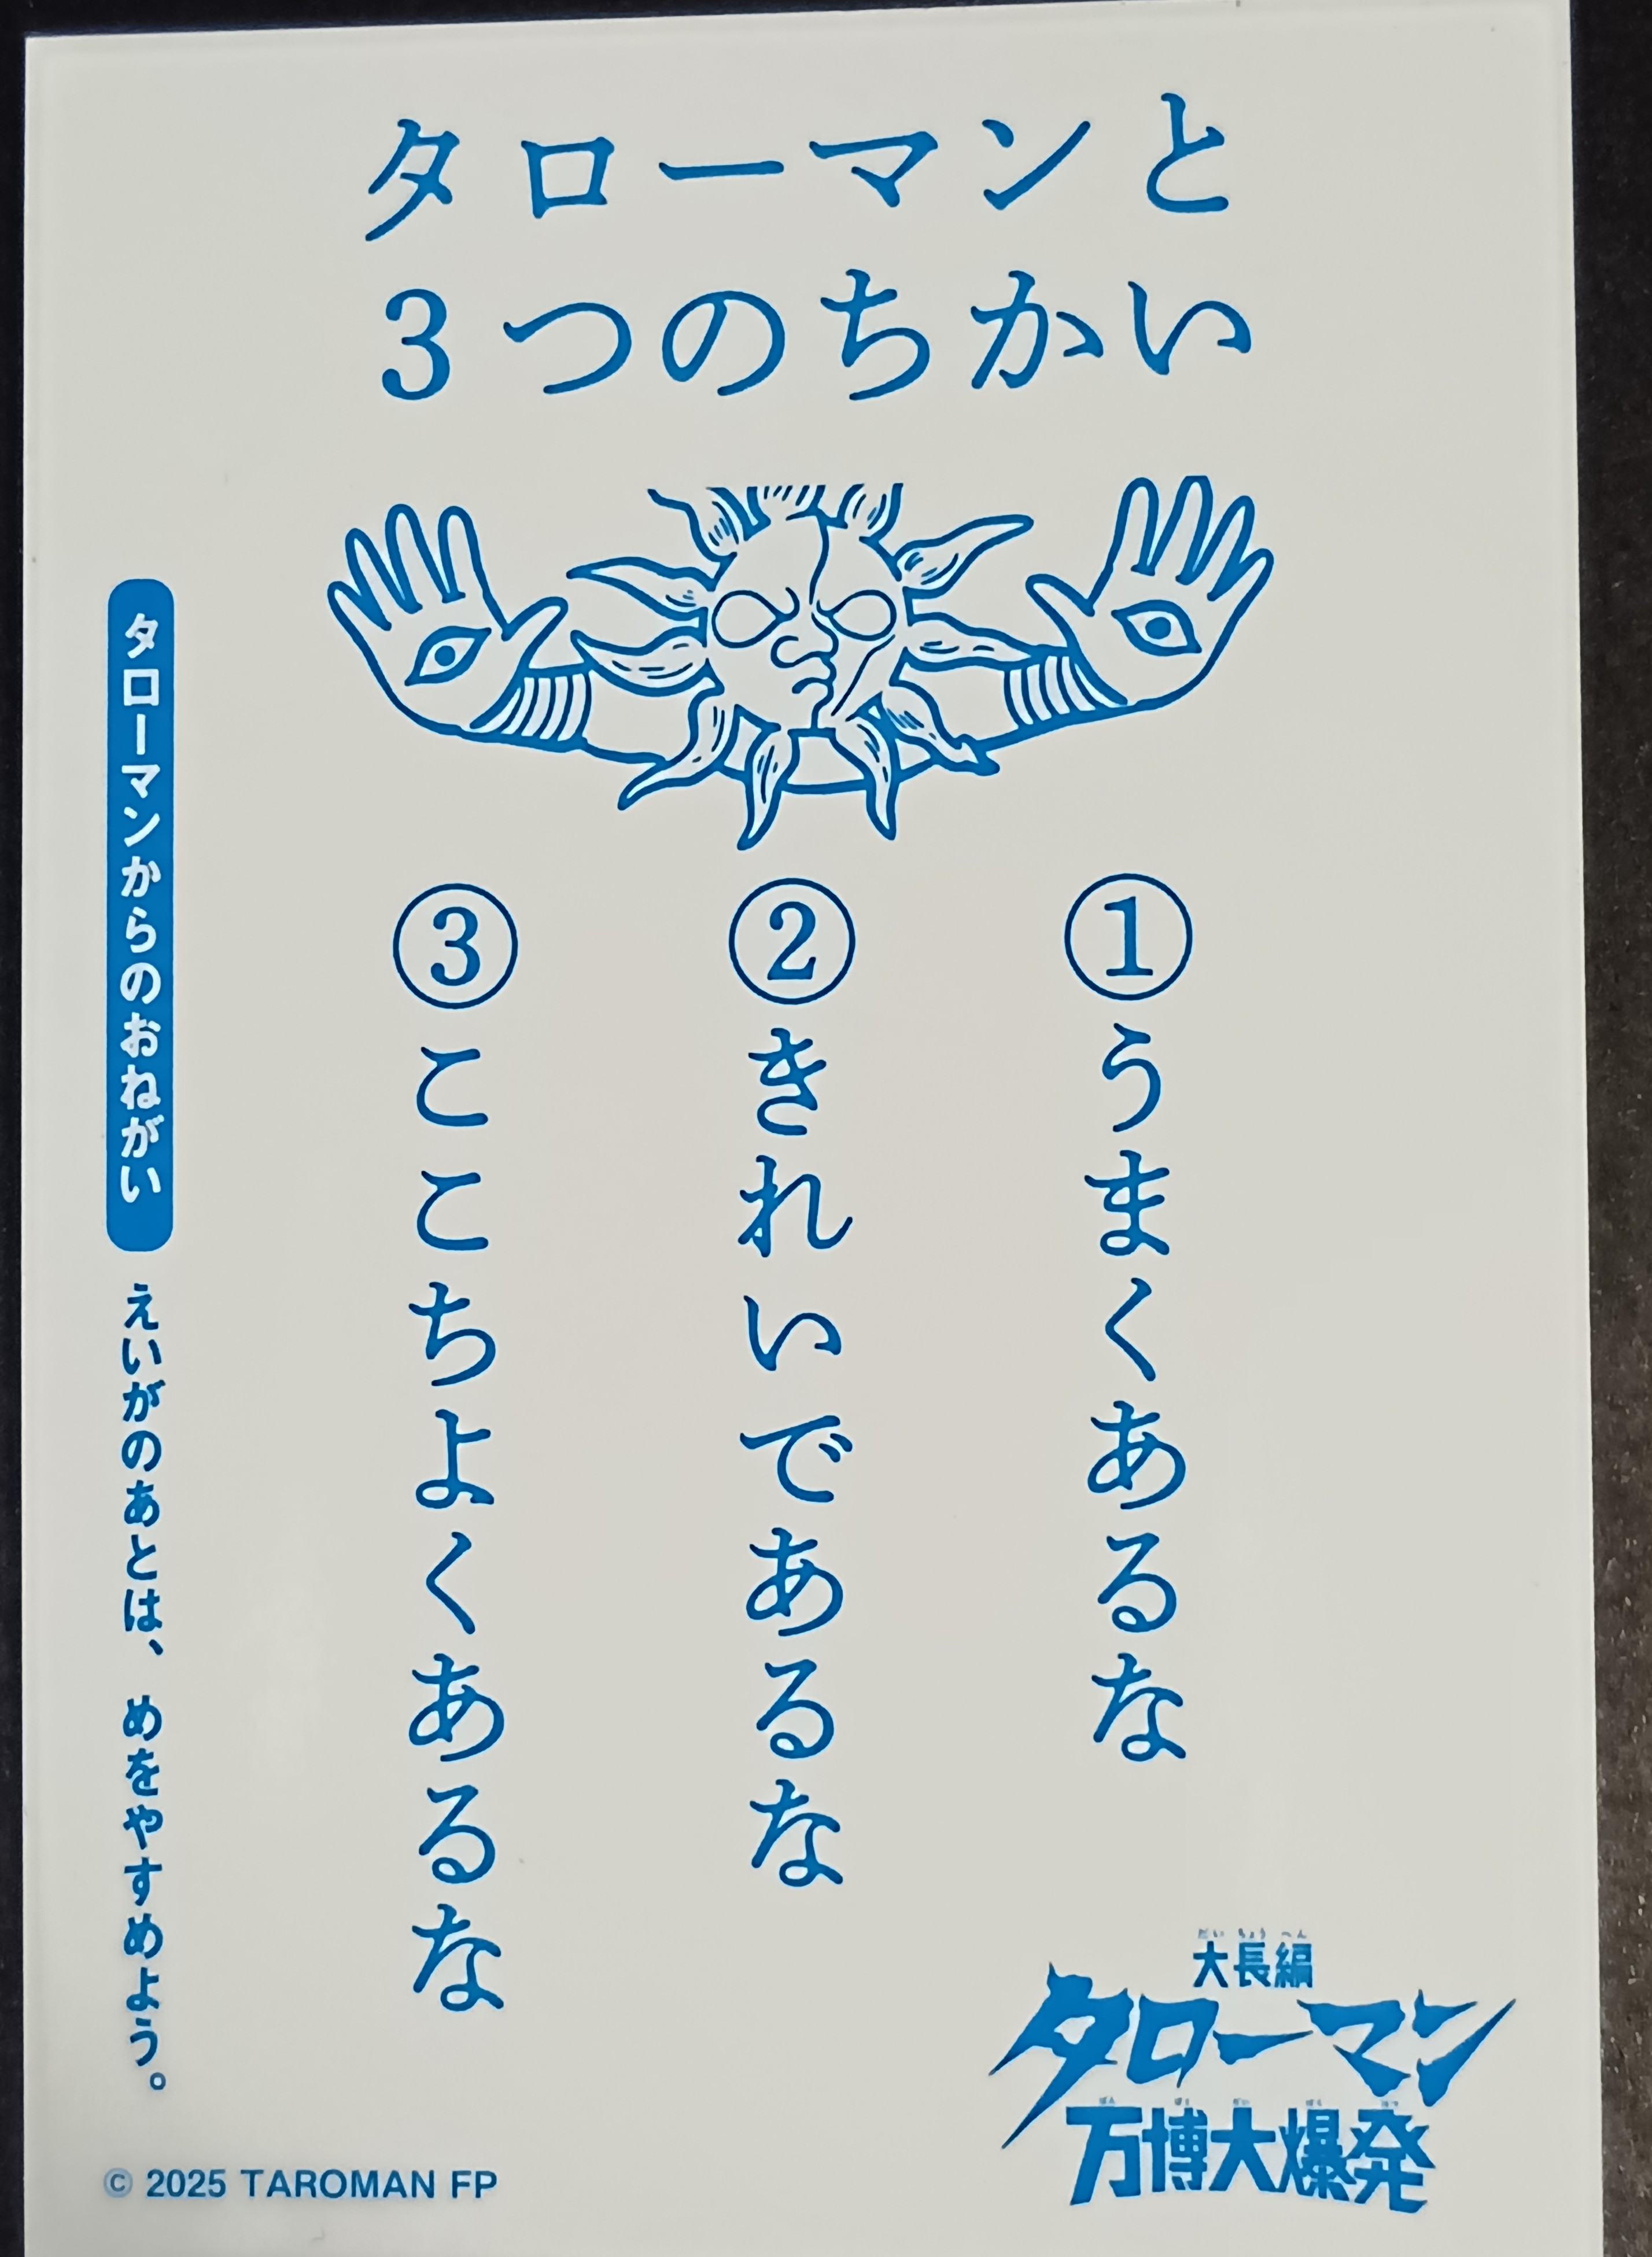 タローマンと
3つのちかい
①うまくあるな
②きれいであるな
③ここちよくあるな
タローマンからのおねがい
えいがのあとは、めをやすめよう。
だいちょうへん
大長編
タローマン
ばんぱくだいばくはつ
万博大爆発
© 2025 TAROMAN FP